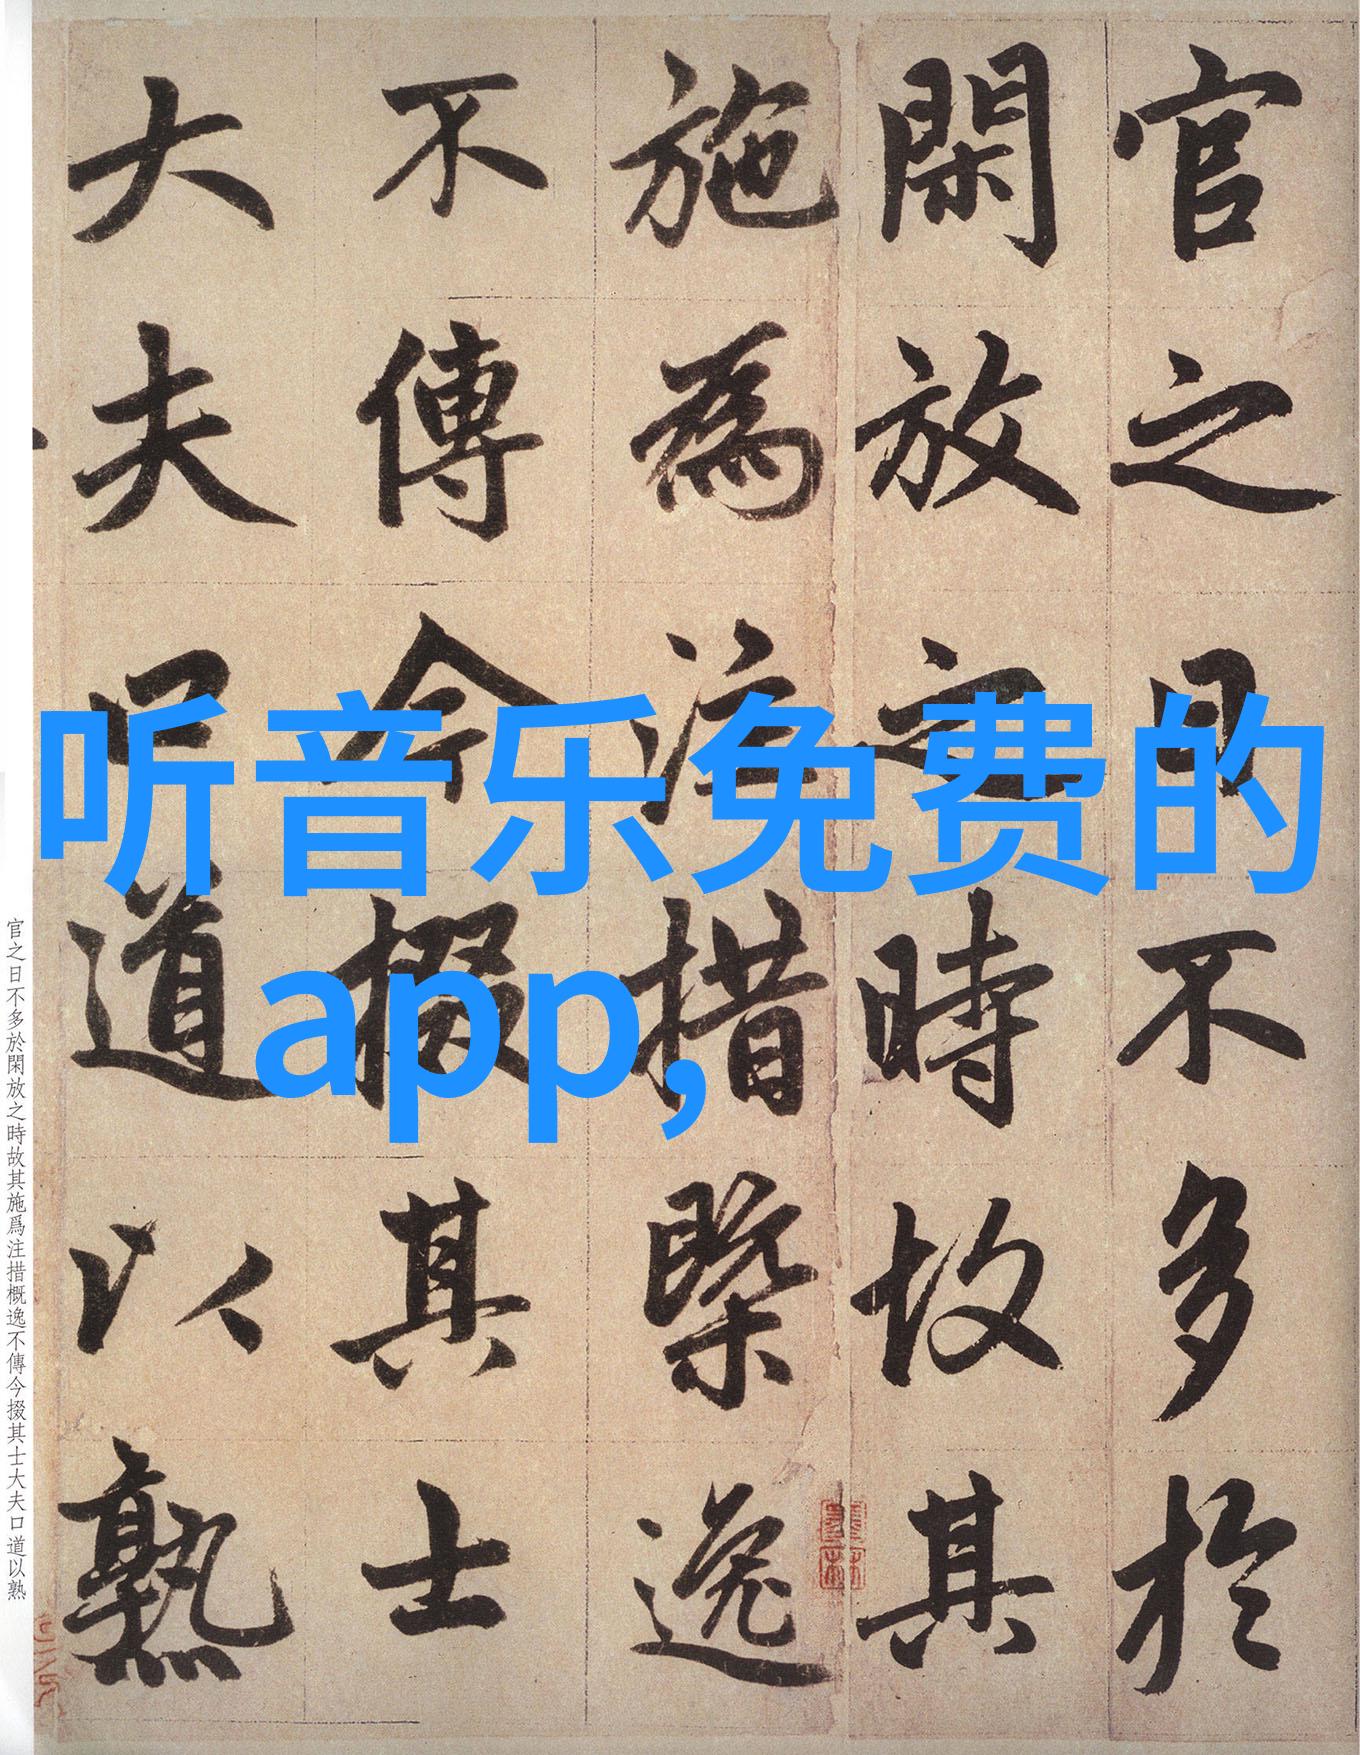 官之日不多於
閑放之時故其
施為注措槩逸
不傳今掇其士
大夫口道以熟
听音乐免费的
app,
官之日不多於閑放之時故其施爲注措概逸不傳今掇其士大夫口道以熟